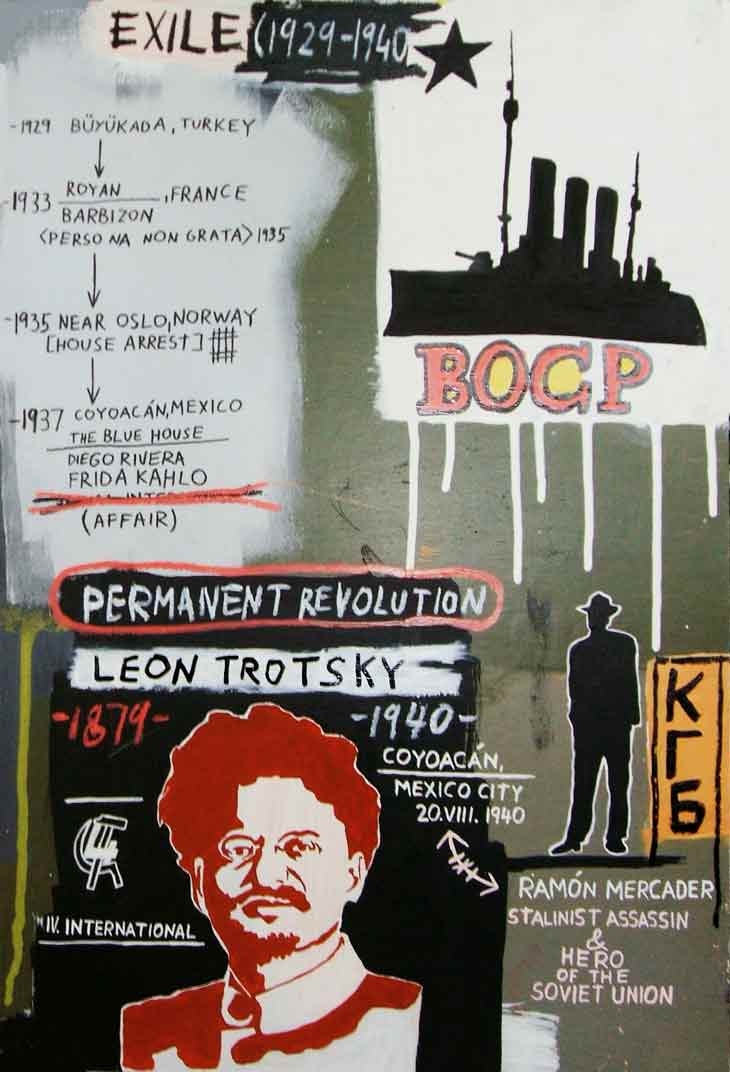 EXILE (1929-1940
-1929 BÜYÜKADA, TURKEY
-1933 ROYAN
BARBIZON , FRANCE
<PERSONA NON GRATA> 1935
-1935 NEAR OSLO, NORWAY
[HOUSE ARREST]
-1937 COYOACÁN, MEXICO
THE BLUE HOUSE
DIEGO RIVERA
FRIDA KAHLO
(AFFAIR)
ВОСР
PERMANENT REVOLUTION
LEON TROTSKY
-1879- -1940-
COYOACÁN,
MEXICO CITY
20.VIII. 1940
КГБ
IV. INTERNATIONAL
RAMÓN MERCADER
STALINIST ASSASSIN
&
HERO
OF THE
SOVIET UNION